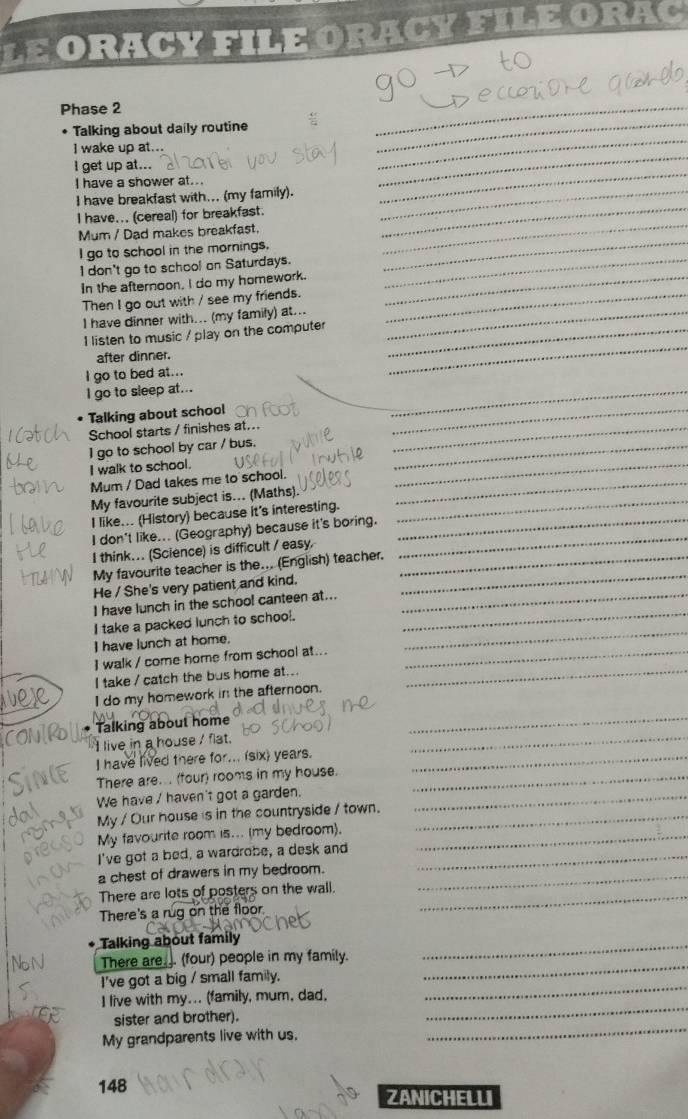 LE ORACY FILE ORACY FILE ORAC
go → to
Phase 2
• Talking about daily routine
I wake up at...
I get up at... alzarsi you stay
I have a shower at...
I have breakfast with... (my family).
I have... (cereal) for breakfast.
Mum / Dad makes breakfast.
I go to school in the mornings.
I don't go to school on Saturdays.
In the afternoon, I do my homework.
Then I go out with / see my friends.
I have dinner with... (my family) at...
I listen to music / play on the computer
after dinner.
I go to bed at...
I go to sleep at...
• Talking about school on foot
I catch
School starts / finishes at...
I go to school by car / bus.
the
I walk to school. useful inutile
train
Mum / Dad takes me to school. useless
My favourite subject is... (Maths).
I like... (History) because it's interesting.
I take
I don't like... (Geography) because it's boring.
the
I think... (Science) is difficult / easy.
My favourite teacher is the... (English) teacher.
He / She's very patient and kind.
I have lunch in the school canteen at...
I take a packed lunch to school.
I have lunch at home.
I walk / come home from school at...
I take / catch the bus home at...
I do my homework in the afternoon.
My mom and dad drives me
to school
• Talking about home
I live in a house / flat.
I have lived there for... (six) years.
SINCE
There are... (four) rooms in my house.
We have / haven't got a garden.
dal
My / Our house is in the countryside / town.
My favourite room is... (my bedroom).
preciso
I've got a bed, a wardrobe, a desk and
in cui
a chest of drawers in my bedroom.
There are lots of posters on the wall.
There's a rug on the floor.
carpet
• Talking about family
NON
There are... (four) people in my family.
I've got a big / small family.
I live with my... (family, mum, dad,
sister and brother).
My grandparents live with us.
148
ZANICHELLI